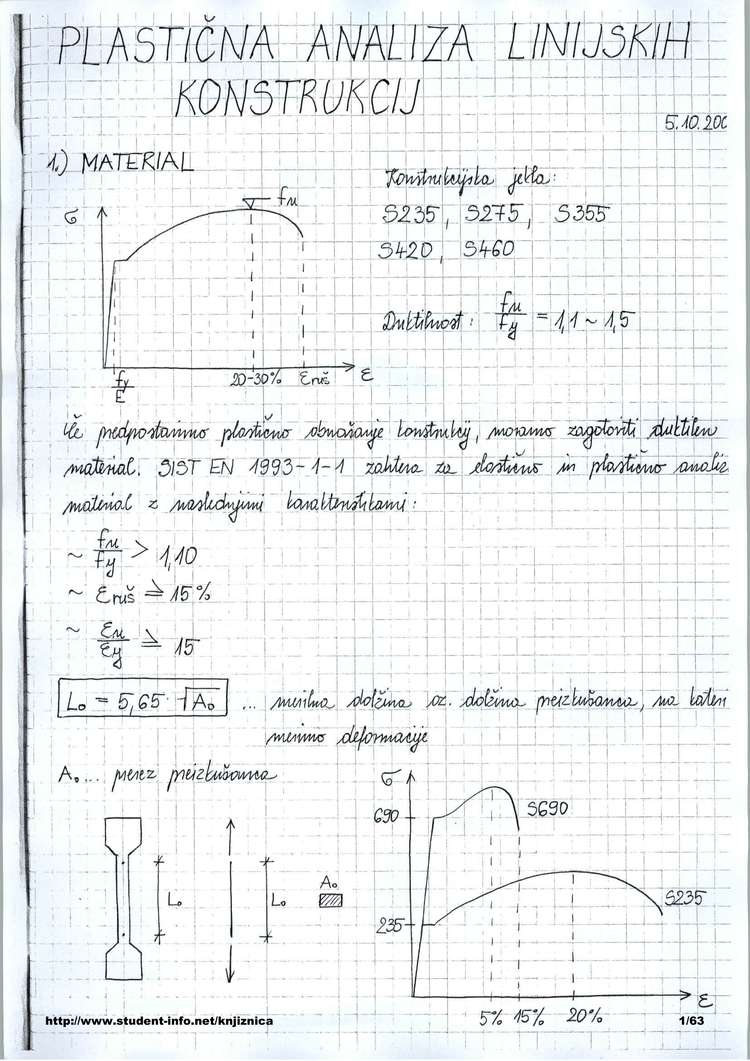 PLASTIČNA ANALIZA LINIJSKIH
KONSTRUKCIJ
5.10.200
1.) MATERIAL
Konstrukcijska jekla:
σ
fu
S235, S275, S355
S420, S460
Duktilnost: fu/fy = 1,1 ~ 1,5
fy/E
20-30%
εruš
ε
Če predpostavimo plastično obnašanje konstrukcij, moramo zagotoviti duktilen
material. SIST EN 1993-1-1 zahteva za elastično in plastično analiz
material z naslednjimi karakteristikami:
~ fu/fy > 1,10
~ εruš ≥ 15%
~ εu/εy ≥ 15
L₀ = 5,65 · √A₀ ... merilna dolžina oz. dolžina preizkušanca, na kateri
merimo deformacije
A₀... prerez preizkušanca
σ
690
S690
L₀
L₀
A₀
S235
235
ε
5% 15% 20%
http://www.student-info.net/knjiznica
1/63